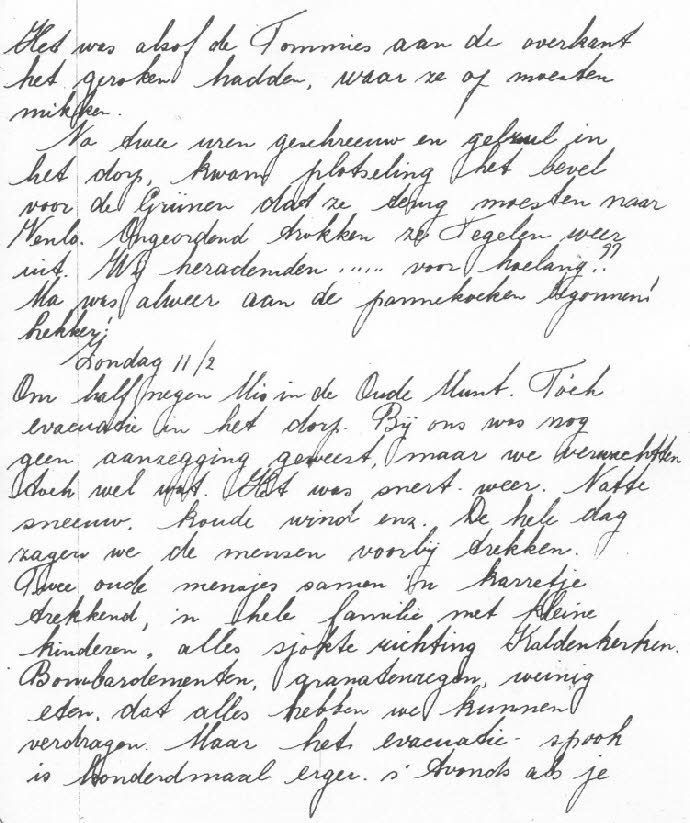 Het was alsof de Tommies aan de overkant
het geroken hadden, waar ze op moesten
mikken.
Na twee uren geschreeuw en gebrul in
het dorp, kwam plotseling het bevel
voor de Grünen dat ze terug moesten naar
Venlo. Ongeordend trokken ze Tegelen weer
uit. Wij herademden ...... voor hoelang??
Ma was alweer aan de pannekoeken begonnen!
lekker!
Zondag 11/2
Om half negen Mis in de Oude Munt. Tóch
evacuatie in het dorp. Bij ons was nog
geen aanzegging geweest, maar we verwachtten
toch wel wat. Het was snert-weer. Natte
sneeuw, koude wind enz. De hele dag
zagen we de mensen voorbij trekken.
Twee oude mensjes samen 'n karretje
trekkend, 'n hele familie met kleine
kinderen, alles sjokte richting Kaldenkerken.
Bombardementen, granatenregen, weinig
eten, dat alles hebben we kunnen
verdragen. Maar het evacuatie-spook
is honderdmaal erger. s'Avonds als je